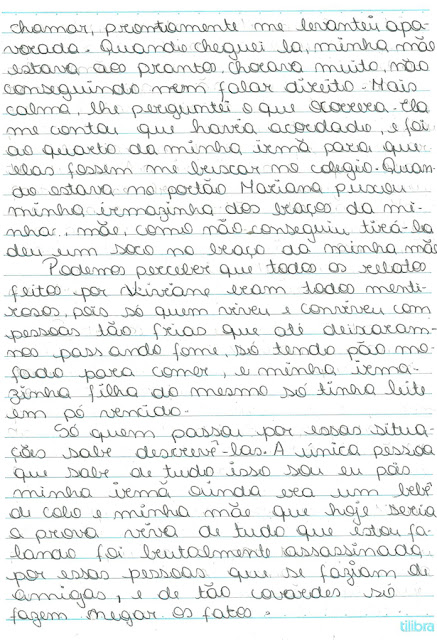 chamar, prontamente me levantei apa-
vorada. Quando cheguei la, minha mãe
estava aos prantos, chorava muito, não
conseguindo nem falar direito. Mais
calma, lhe perguntei o que ocorrera. Ela
me contou que havia acordado, e foi
ao quarto da minha irmã para que
elas fossem me buscar no colegio. Quan-
do estava no portão Mariana puxou
minha irmazinha dos braços da mi-
nha mãe, como não conseguiu tirá-la
deu um soco no braço da minha mãe
Podemos perceber que todos os relatos
feitos por Viviane eram todos menti-
rosos, pois só quem viveu e conviveu com
pessoas tão frias que até deixaram-
nos passando fome, só tendo pão mo-
fado para comer, e minha irma-
zinha filha do mesmo só tinha leite
em pó vencido.
Só quem passou por essas situa-
ções sabe descrevê-las. A única pessoa
que sabe de tudo isso sou eu pois
minha irmã ainda era um bebê
de colo e minha mãe que hoje seria
a prova viva de tudo que estou fa-
lando foi brutalmente assassinada
por essas pessoas que se faziam de
amigas, e de tão covardes só
fazem negar os fatos.
tilibra